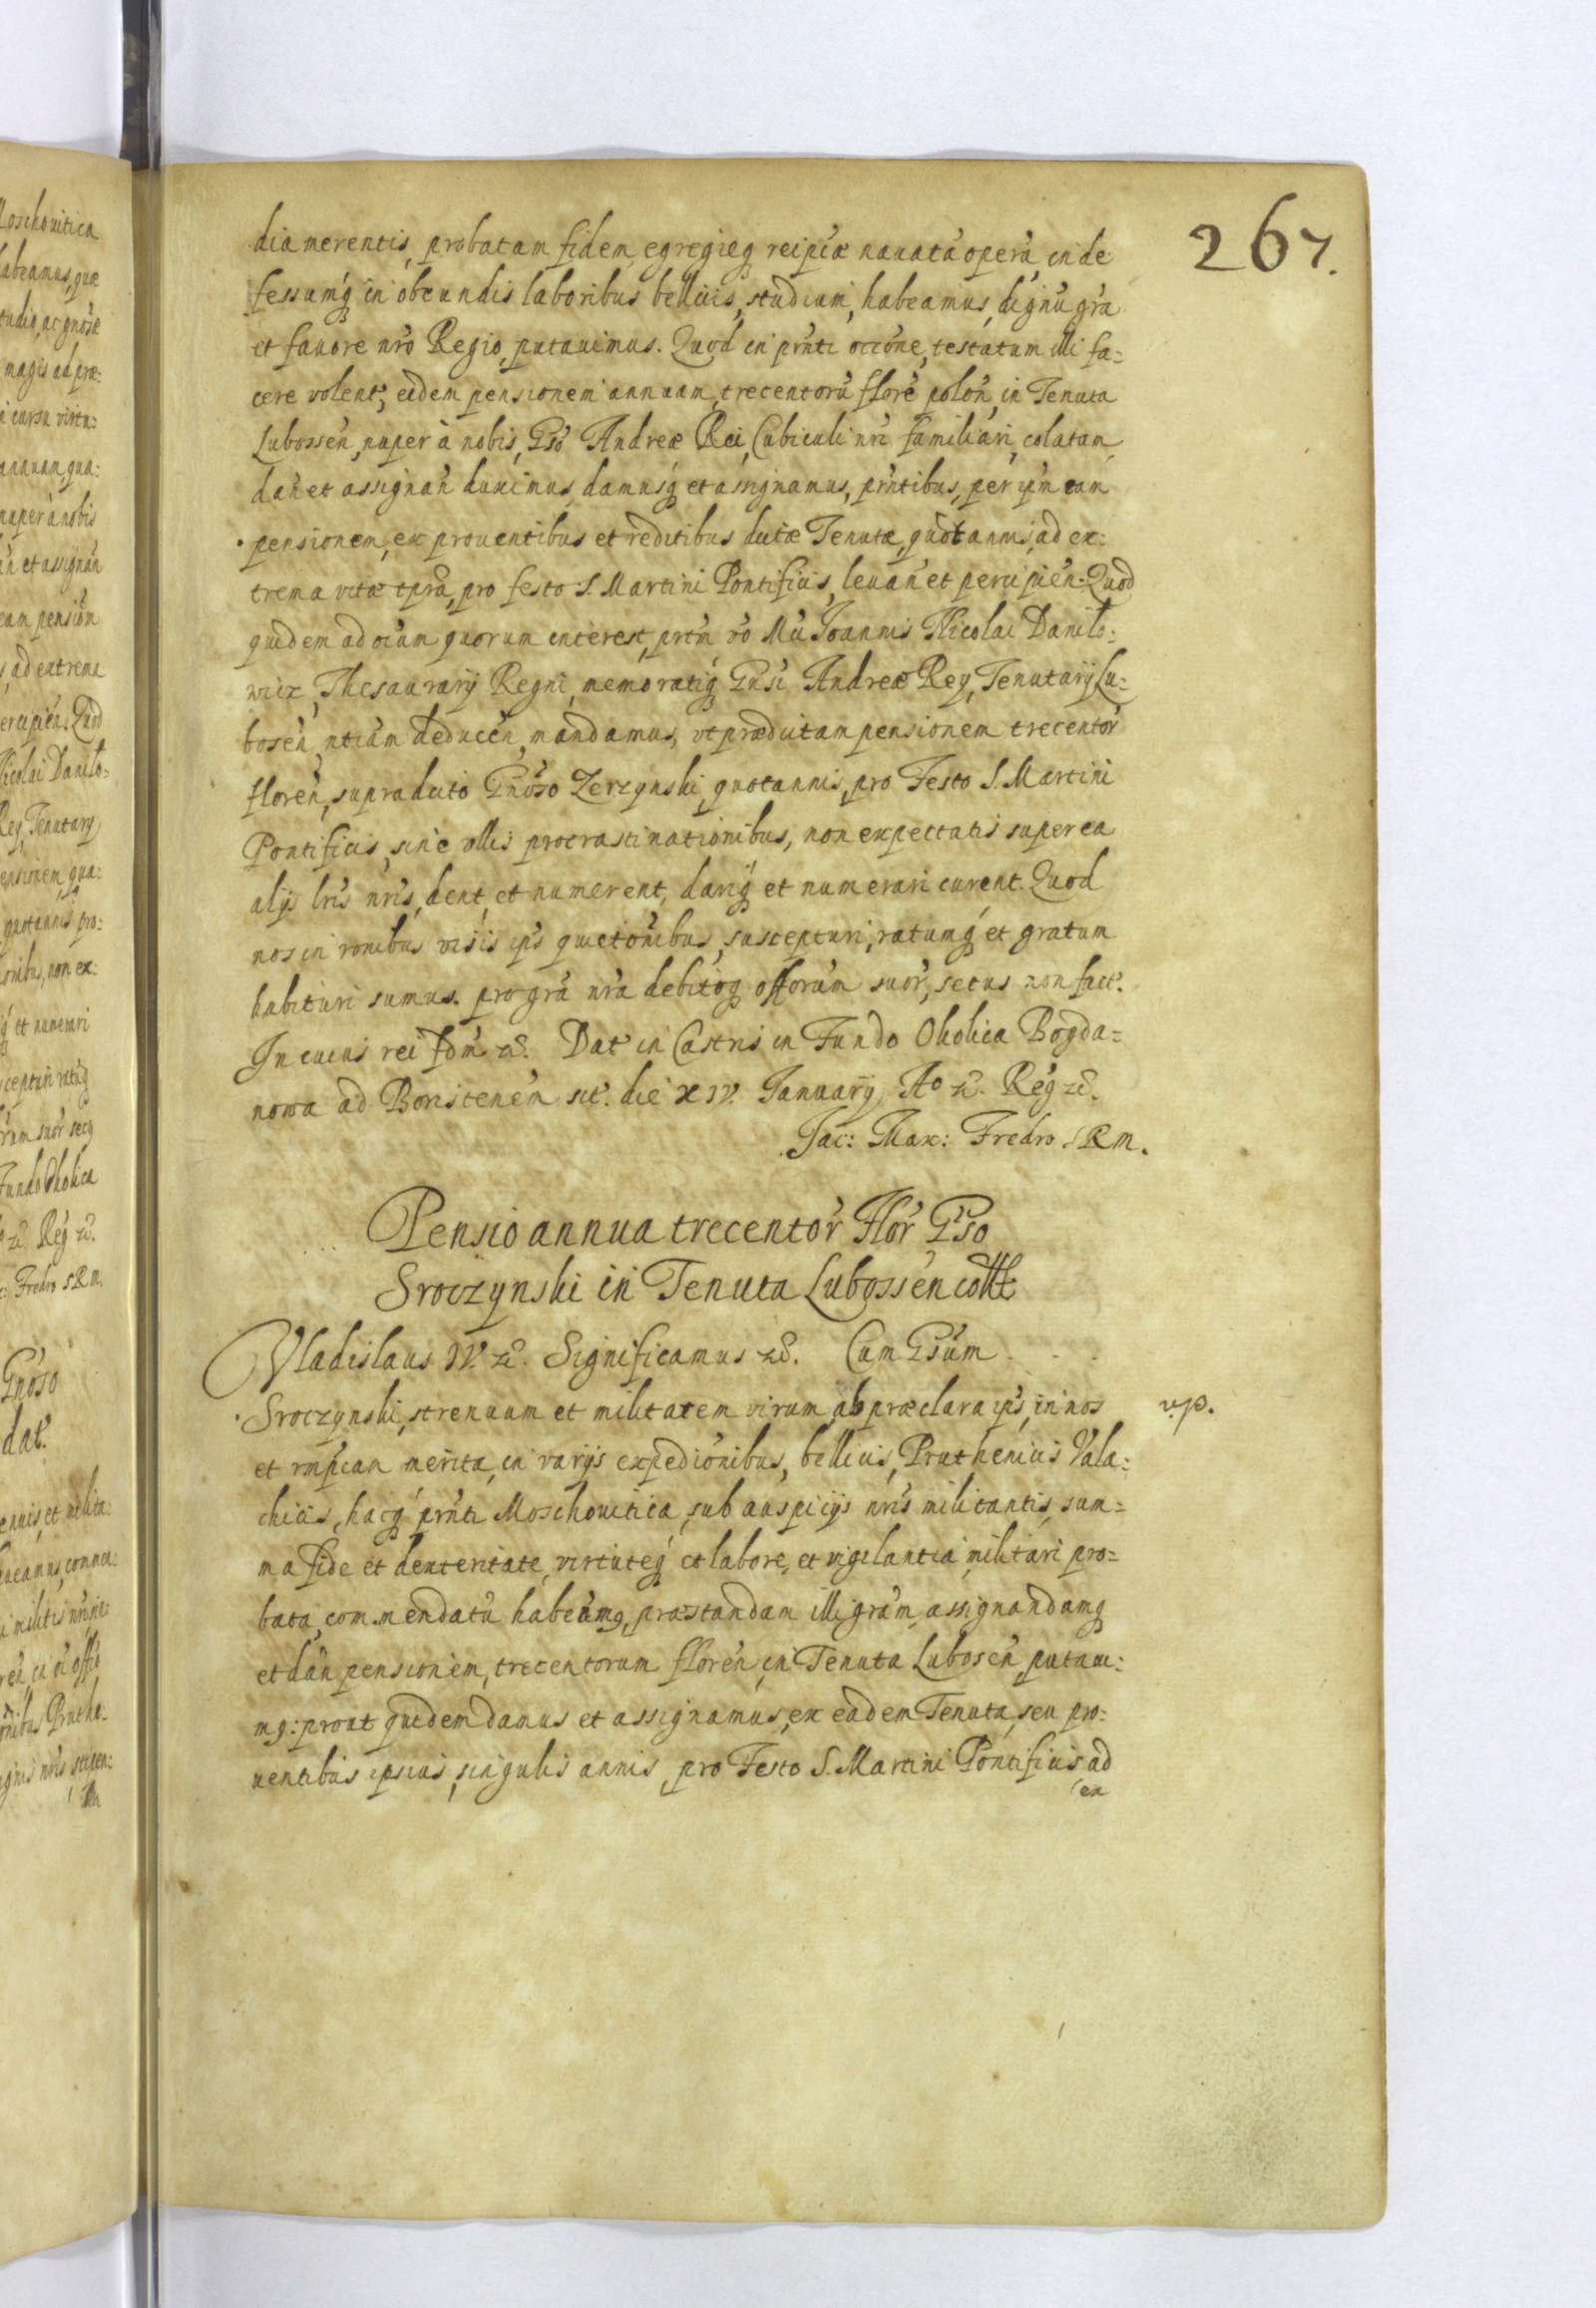 267.
dia merentis, probatam fidem, egregieq reipcæ nauatã operã, inde
fessamq́ in obeundis laboribus bellicis, studium, habeamus, dignũ gr̃a
et fauore nr̃o Regio, putauimus. Quod in prñti occõne, testatum illi fa=
cere volent̃, eidem pensionem annuam, trecentorũ florẽ polon̄, in Tenuta
Lubossen̄, nuper à nobis, Gso Andreæ Rei, Cubiculi nr̃i familiari, colatam
dan̄ et assignan̄ duximus, damusq́ et assignamus, prñtibus, per ip̃m eam
pensionem, ex prouentibus et reditibus dictæ Tenutæ, quotannis, ad ex:
trema vitæ tp̃ra, pro festo S. Martini Pontificis, leuan̄ et percipien̄. Quod
quidem ad oĩum quorum interest, prtm̃ v̊o Mci Ioannis Nicolai Danilo:
wicz, Thesaurarij Regni, memoratiq́ Gnsi Andreæ Rey, Tenutarij Lu:
bosen̄, ntiãm deducen̄, mandamus, vt prædictam pensionem trecentor̃
floren̄, supradicto Gnõso Zerzynski, quotannis, pro Festo S. Martini
Pontificis, sine vllis procrastinationibus, non expectatis super ea
alijs lr̃is nr̃is, dent, et numerent, dariq́ et numerari curent. Quod
nos in ronibus visis ip̃s quietõnibus, suscepturi, ratumq́ et gratum
habituri sumus. pro gr̃a nr̃a debitoq offorum suor̃, secus non fact.
In cuius rei fdm̃ &. Dat in Castris in Fundo Okolica Bogda=
nowa ad Boristenem sit. die XIV. Ianuarij Ao &. Reg &.
Jac: Max: Fredro SRM.
Pensio annua trecentor̃ Flor̃ Gso
Sroczynski in Tenuta Lubossen̄ coll̃
Vladislaus IV. &. Significamus &. Cum Gsum
Sroczynski, strenuum et militarem virum, ab præclara ip̃s, in nos
v.p.
et rmpcam merita, in varijs expedionibus, bellicis, Pruthenicis Vala:
chicis, hacq́ prñti Moschouitica, sub auspicijs nr̃is militantis, sum=
ma fide et dexteritate, virtuteq́ et labore, et vigilantia, militari pro=
bata, commendatũ habeamq, præstandam illi gram, assignandamq
et dan̄ pensionem, trecentorum floren̄, in Tenuta Lubosen̄, putaui:
mq: prout quidem damus et assignamus, ex eadem Tenuta, seu pro:
uentibus ipsius, singulis annis, pro Festo S. Martini Pontificis, ad
ex